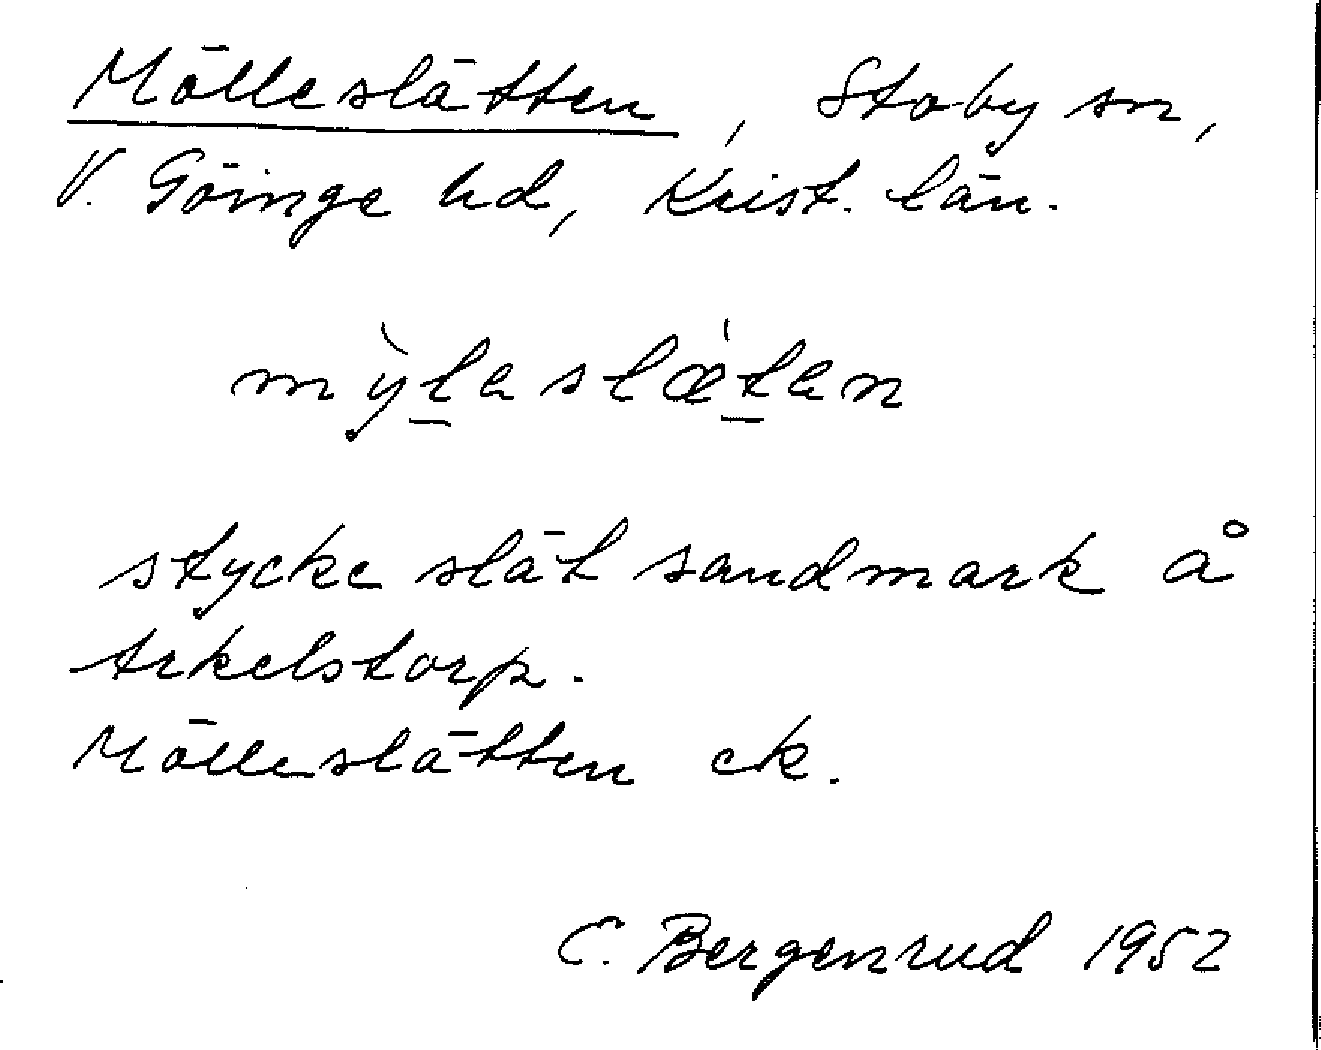 Mölleslätten, Stoby sn,
V. Göinge hd, Krist. län.
mỳl̲aslæ̍t̲an
stycke slät sandmark å
Arkelstorp.
Mölleslätten ek.
C. Bergenrud 1952